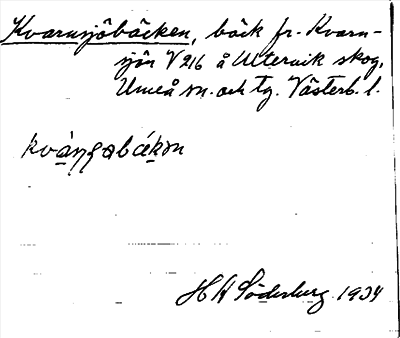 Kvarnsjöbäcken, bäck fr. Kvarn-
sjön V 216 å Ultervik skog,
Umeå sn. och tg. Västerb. l.
kváŋʂabäkən
H A Söderberg 1934